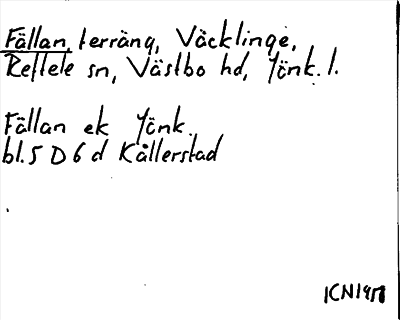 Fällan, terräng, Väcklinge,
Reftele sn, Västbo hd, Jönk. l.
Fällan ek Jönk.
bl. 5 D 6 d Kållerstad